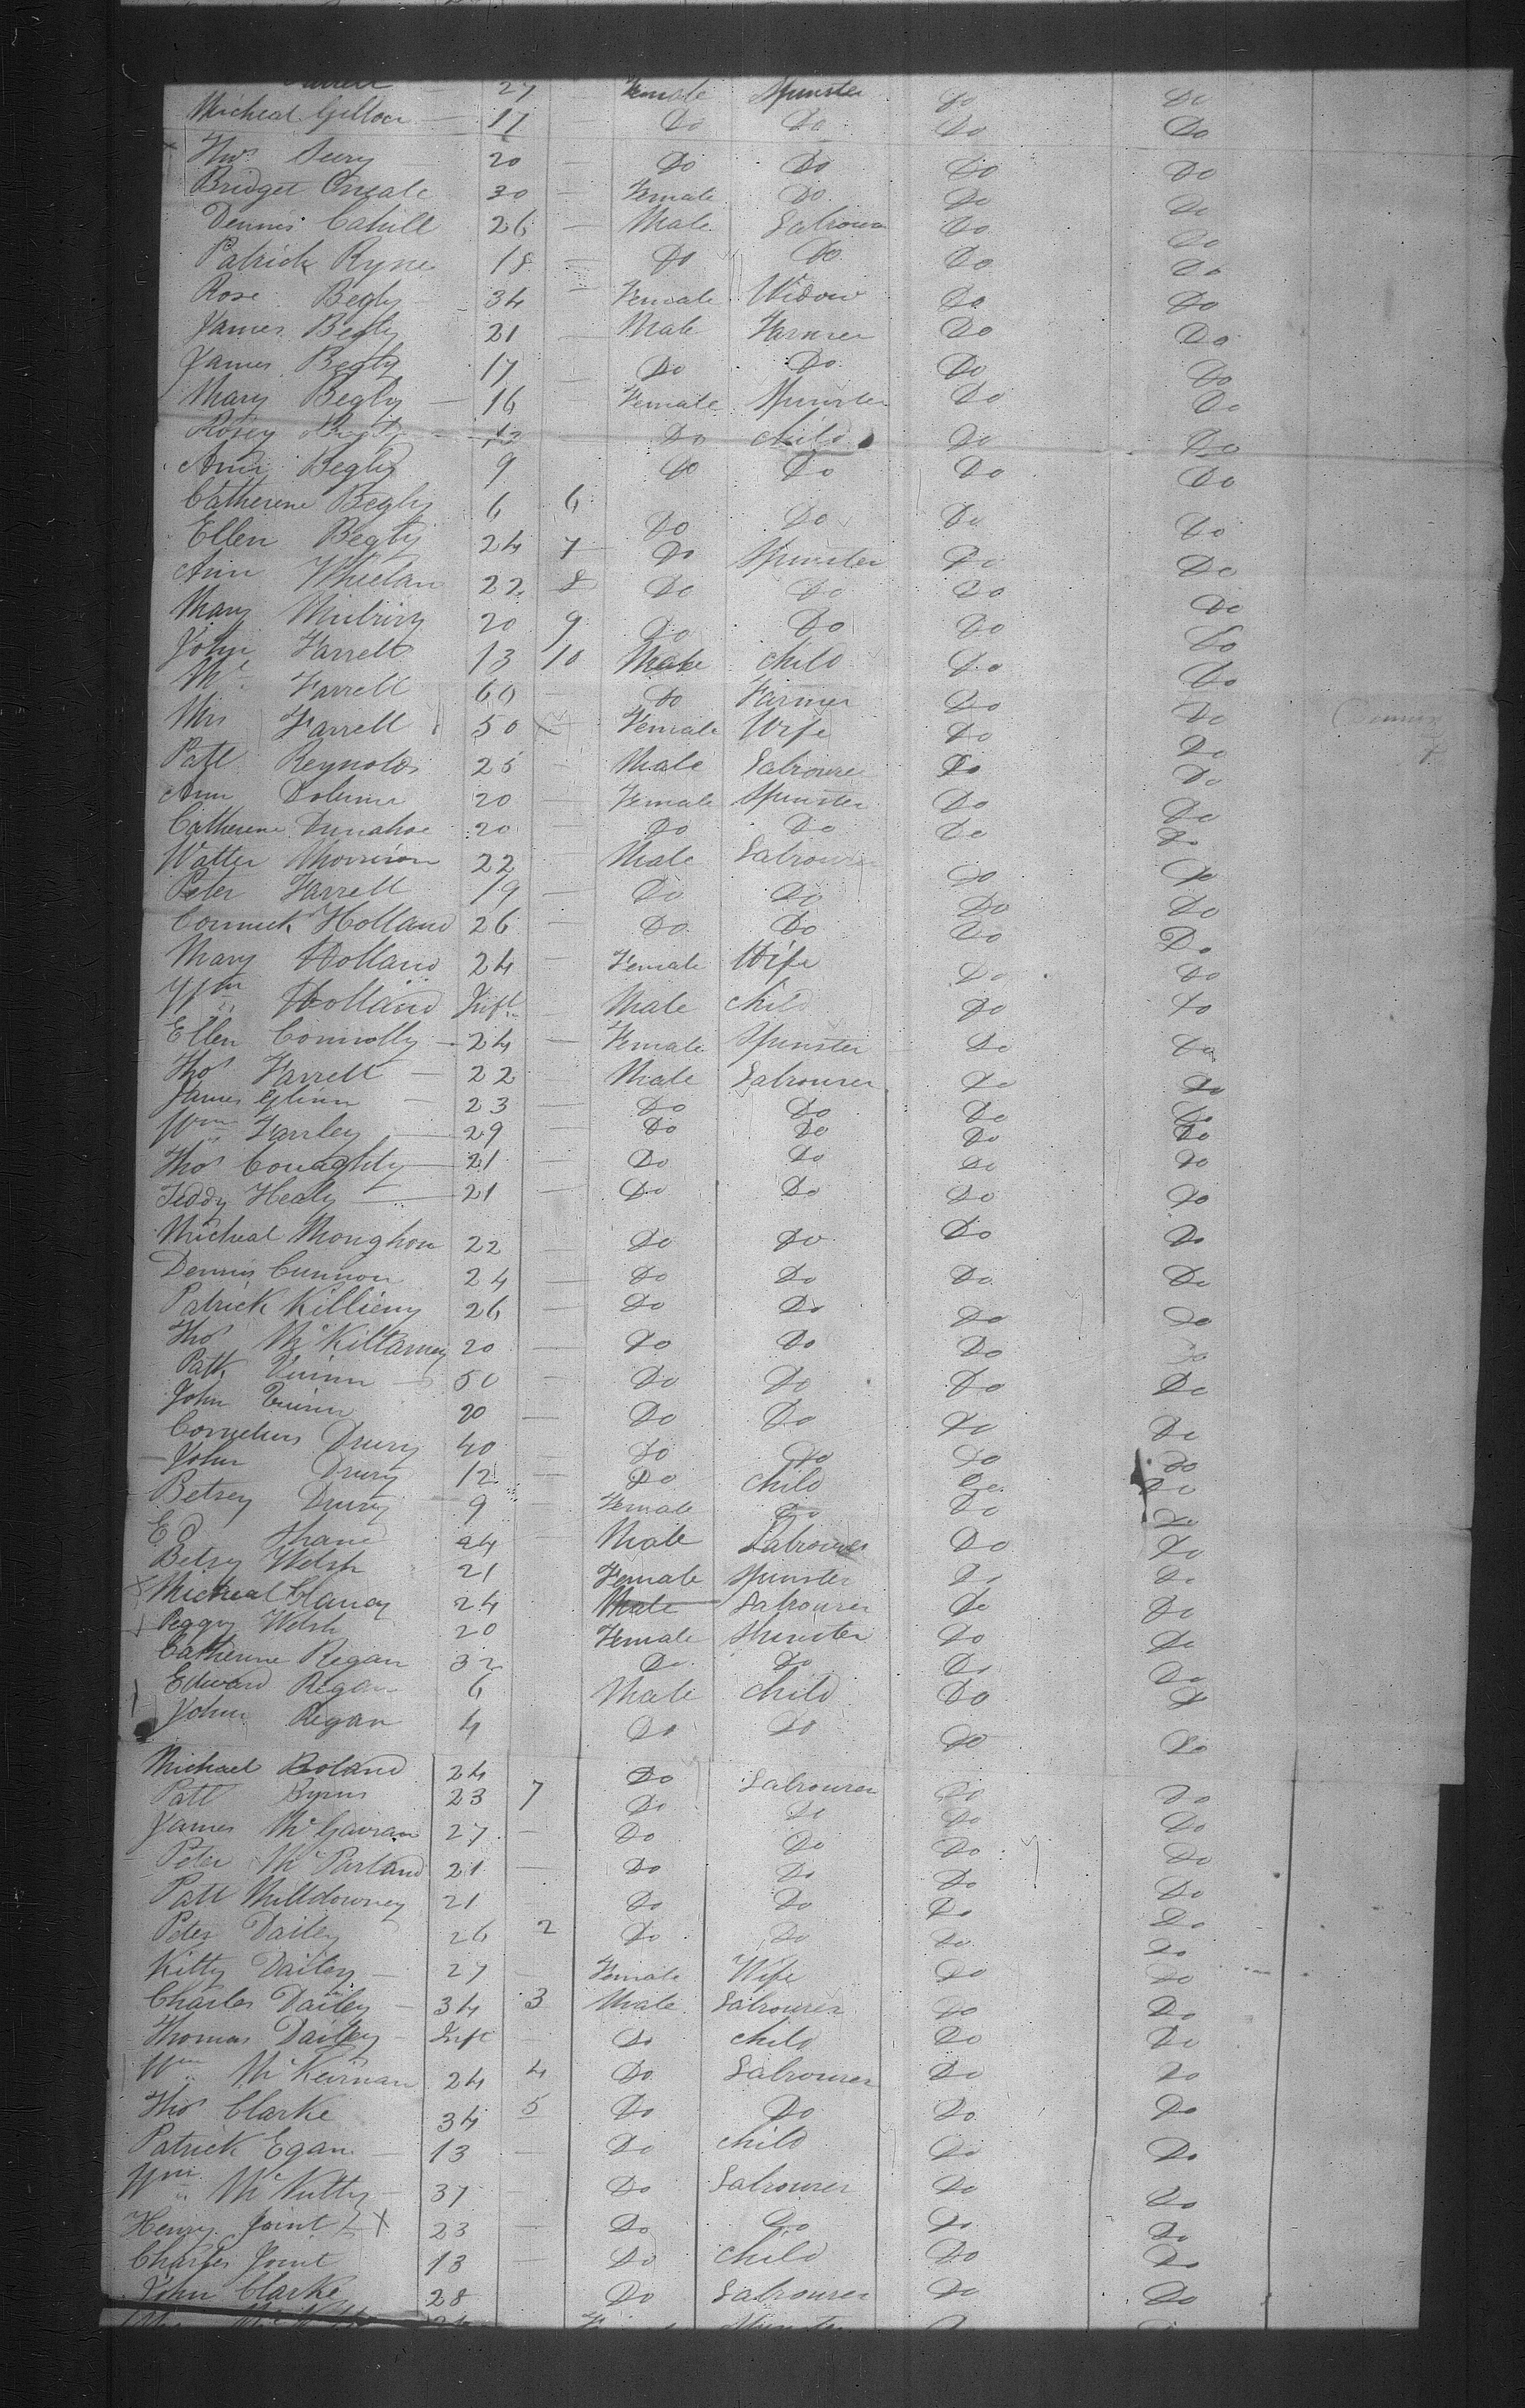 Farrell 27 Female Spinster Do Do
Micheal Gilloon 11 Do Do Do Do
Thos Seery 20 Do Do Do Do
Bridget Oneale 30 Female Do Do Do
Dennis Cahill 26 Male Labourer Do Do
Patrick Ryne 18 Do Do Do Do
Rose Begly 34 Female Widow Do Do
James Begly 21 Male Farmer Do Do
James Begly 17 Do Do Do Do
Mary Begly 16 Female Spinster Do Do
Rosey Begly 12 Do child Do Do
Ann Begly 9 Do Do Do Do
Catherine Begly 6 6 Do Do Do Do
Ellen Begly 24 7 Do Spinster Do Do
Ann Whelan 22 8 Do Do Do Do
Mary 20 9 Do Do Do Do
John Farrell 13 10 Male child Do Do
Mr Farrell 60 Do Farmer Do Do
Mrs Farrell 50 Female Wife Do Do
Patt Reynolds 25 Male Labourer Do Do
Ann 20 Female Spinster Do Do
Catherine Dunahoe 20 Do Do Do Do
Walter Morrison 22 Male Labourer Do Do
Peter Farrell 19 Do Do Do Do
Cormick Holland 26 Do Do Do Do
Mary Holland 24 Female Wife Do Do
Wm Holland Inft Male child Do Do
Ellen Connolly 24 Female Spinster Do Do
Thos Farrell 22 Male Labourer Do Do
James Glinn 23 Do Do Do Do
Wm Farrley 29 Do Do Do Do
Thos Conaghty 21 Do Do Do Do
Teddy Healy 21 Do Do Do Do
Micheal Monghon 22 Do Do Do Do
Dennis Cunnon 24 Do Do Do Do
Patrick Killieny 26 Do Do Do Do
Thos McKiltarney 20 Do Do Do Do
Patk Quinn 50 Do Do Do Do
John Quinn 20 Do Do Do Do
Cornelius Drury 40 Do Do Do Do
John Drury 12 Do child Do Do
Betsey Drury 9 Female Do Do Do
Ed Shane 24 Male Labourer Do Do
Betsy Welsh 21 Female Spinster Do Do
X Micheal Clancy 24 Male Labourer Do Do
Peggy Welsh 20 Female Spinster Do Do
Catherine Regan 32 Do Do Do Do
Edward Regan 6 Male child Do Do
John Regan 4 Do Do Do Do
Michael Boland 24 Do Labourer Do Do
Patt Byrns 23 7 Do Do Do Do
James McGavran 27 Do Do Do Do
Peter McParland 21 Do Do Do Do
Patt Milldowney 21 Do Do Do Do
Peter Dailey 26 2 Do Do Do Do
Kitty Dailey 27 Female Wife Do Do
Charles Dailey 34 3 Male Labourer Do Do
Thomas Dailey Inft Do child Do Do
Wm McKeirnan 24 4 Do Labourer Do Do
Thos Clarke 34 5 Do Do Do Do
Patrick Egan 13 Do child Do Do
Wm McNulty 37 Do Labourer Do Do
Henry Joint X 23 Do Do Do Do
Charles Joint 13 Do child Do Do
John Clarke 28 Do Labourer Do Do